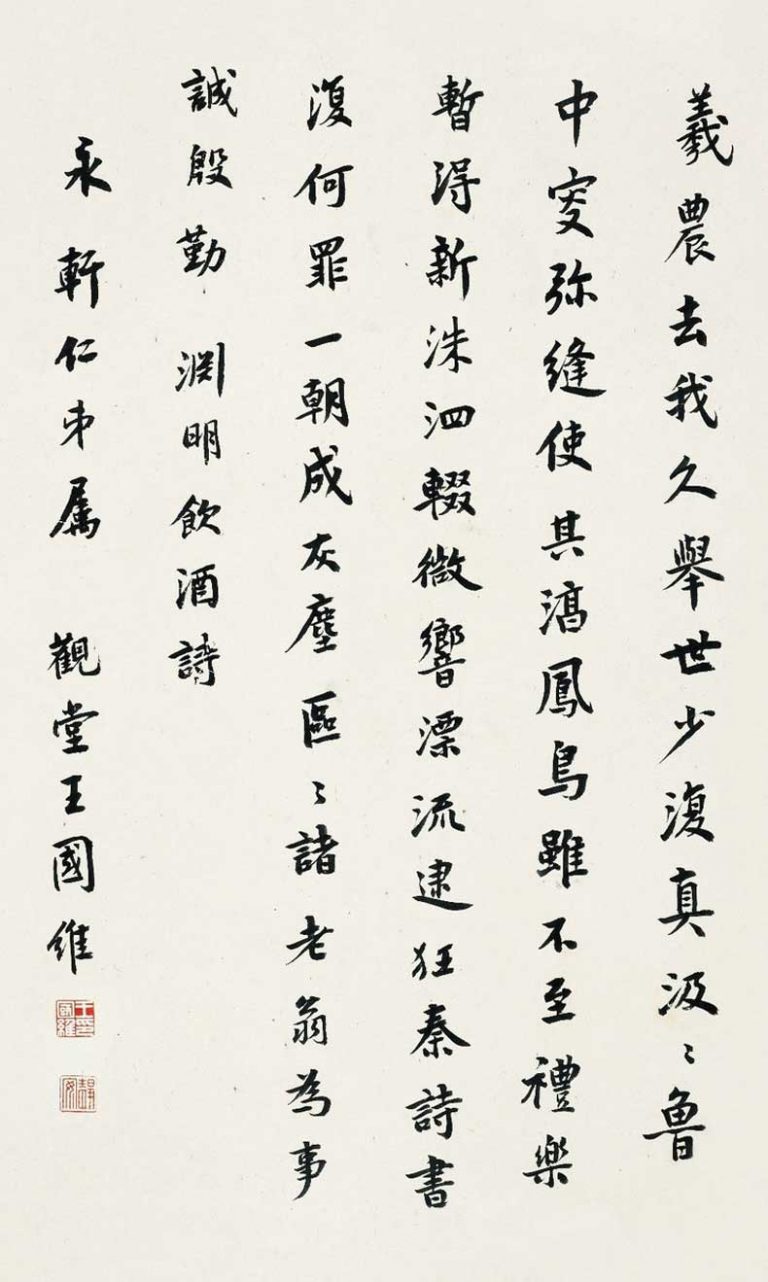 羲農去我久舉世少復真汲〻魯
中叟弥縫使其淳鳳鳥雖不至禮樂
暫得新洙泗輟微響漂流逮狂秦詩書
復何罪一朝成灰塵區〻諸老翁為事
誠殷勤 淵明飲酒詩
永軒仁弟属 觀堂王國維
王國維印
靜安